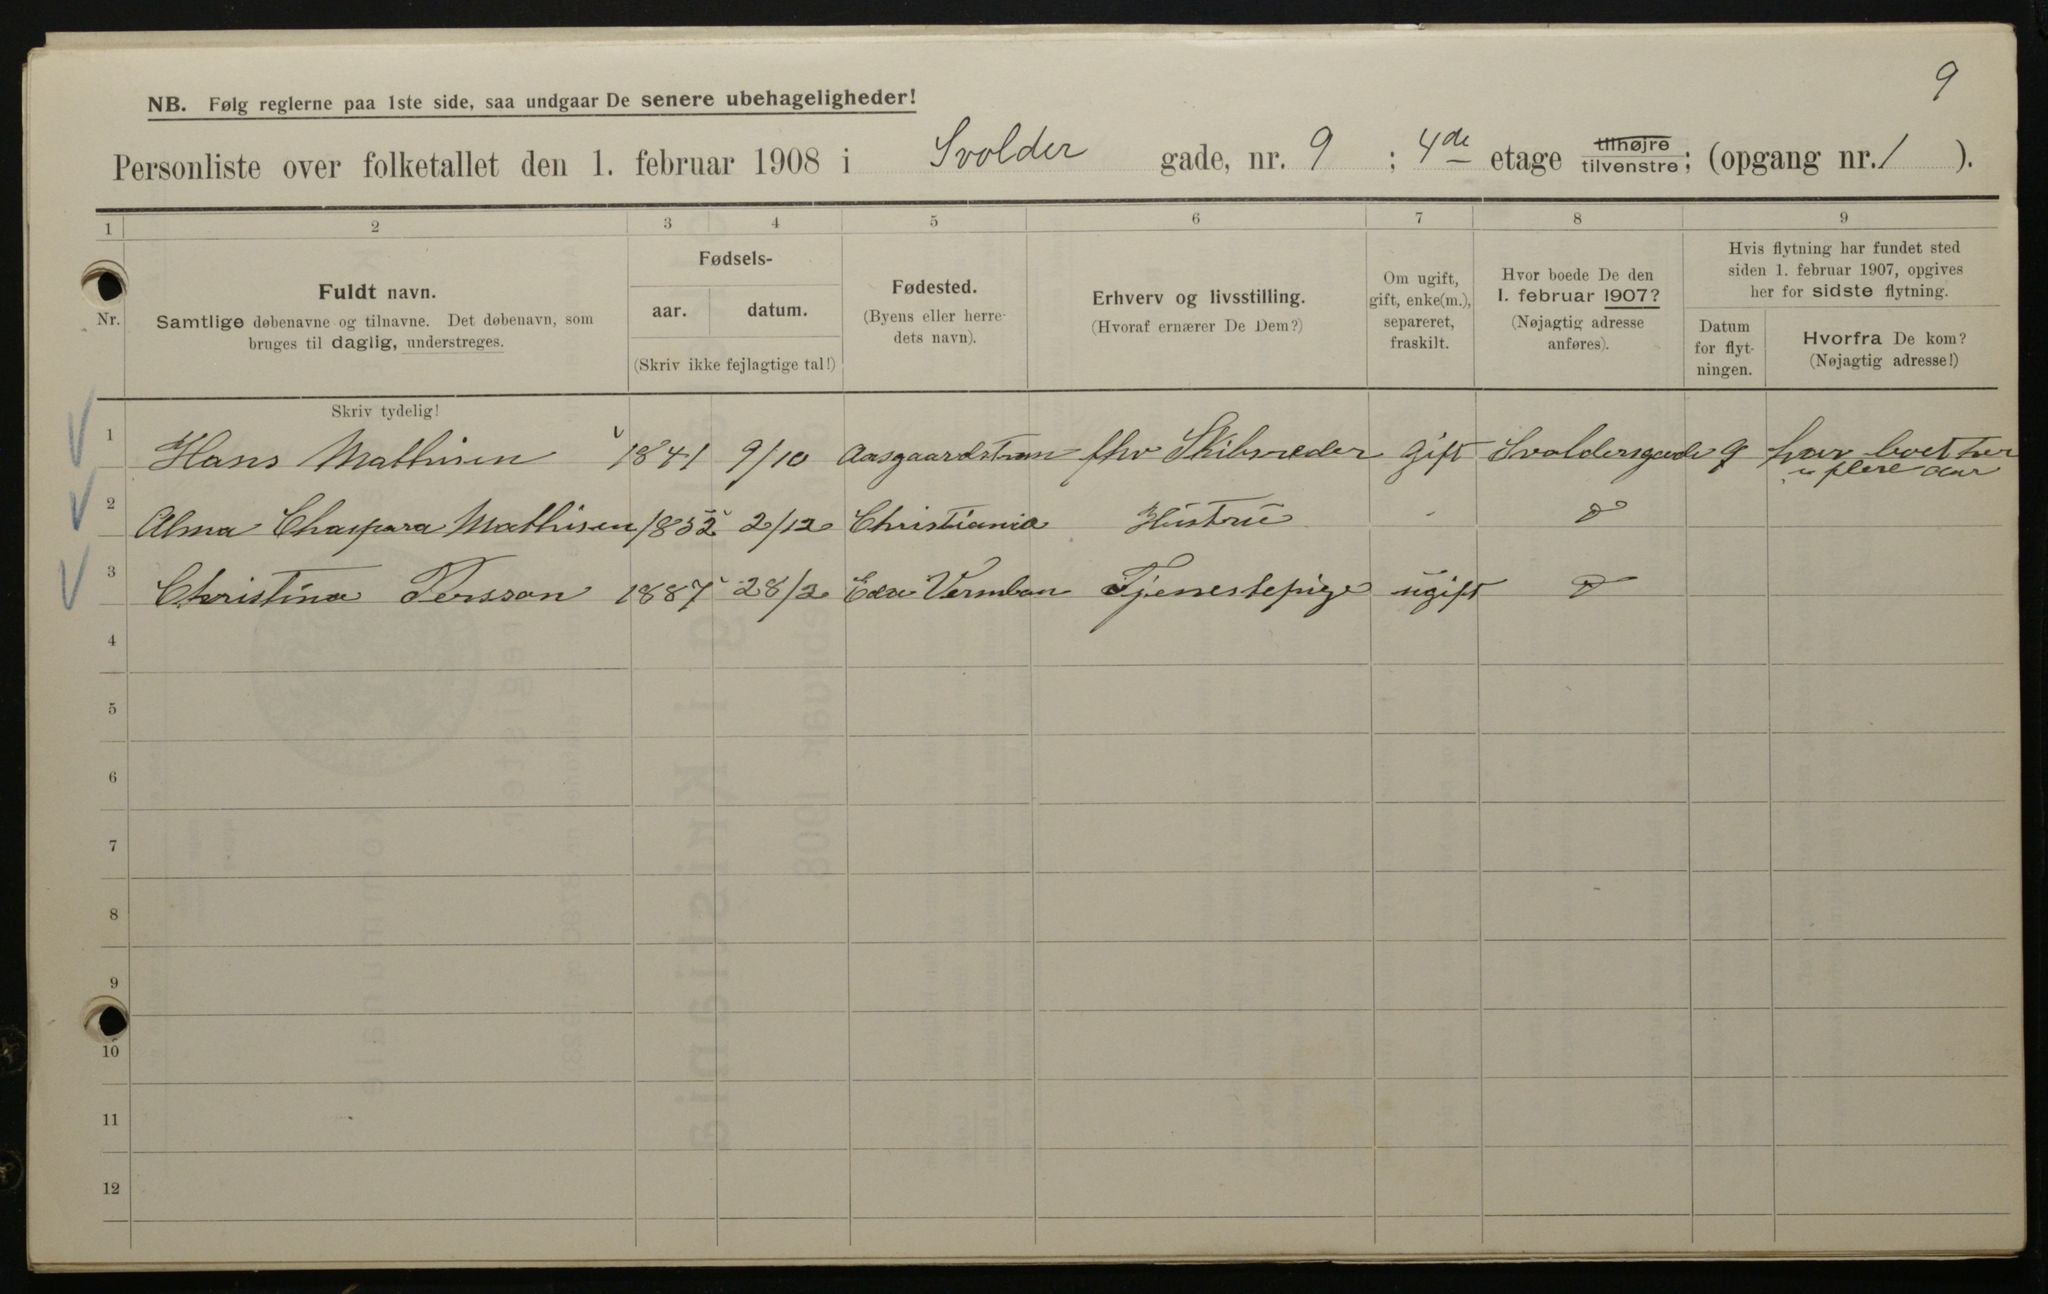 9
NB. Følg reglerne paa 1ste side, saa undgaar De senere ubehageligheder!
Personliste over folketallet den 1. februar 1908 i Svolder gade, nr. 9 ; 4de etage tilhøjre tilvenstre; (opgang nr. 1 ).
1 2 3 4 5 6 7 8 9
Nr.
Fuldt navn.
Samtlige døbenavne og tilnavne. Det døbenavn, som
bruges til daglig, understreges.
Skriv tydelig!
Fødsels-
aar. datum.
(Skriv ikke fejlagtige tal!)
Fødested.
(Byens eller herre-
dets navn).
Erhverv og livsstilling.
(Hvoraf ernærer De Dem?)
Om ugift,
gift, enke(m.),
separeret,
fraskilt.
Hvor boede De den
1. februar 1907?
(Nøjagtig adresse
anføres).
Hvis flytning har fundet sted
siden 1. februar 1907, opgives
her for sidste flytning.
Datum
for flyt-
ningen.
Hvorfra De kom?
(Nøjagtig adresse!)
1 Hans Mathisen 1841 9/10 Aasgaardstran fhv Skibsreder gift Svoldersgade 9 har boet her
i flere aar
2 Alma Mathisen 1852 2/12 Christiania Hustru
3 Christina Persson 1887 28/2 Eda Tjenestepige ugift
4
5
6
7
8
9
10
11
12